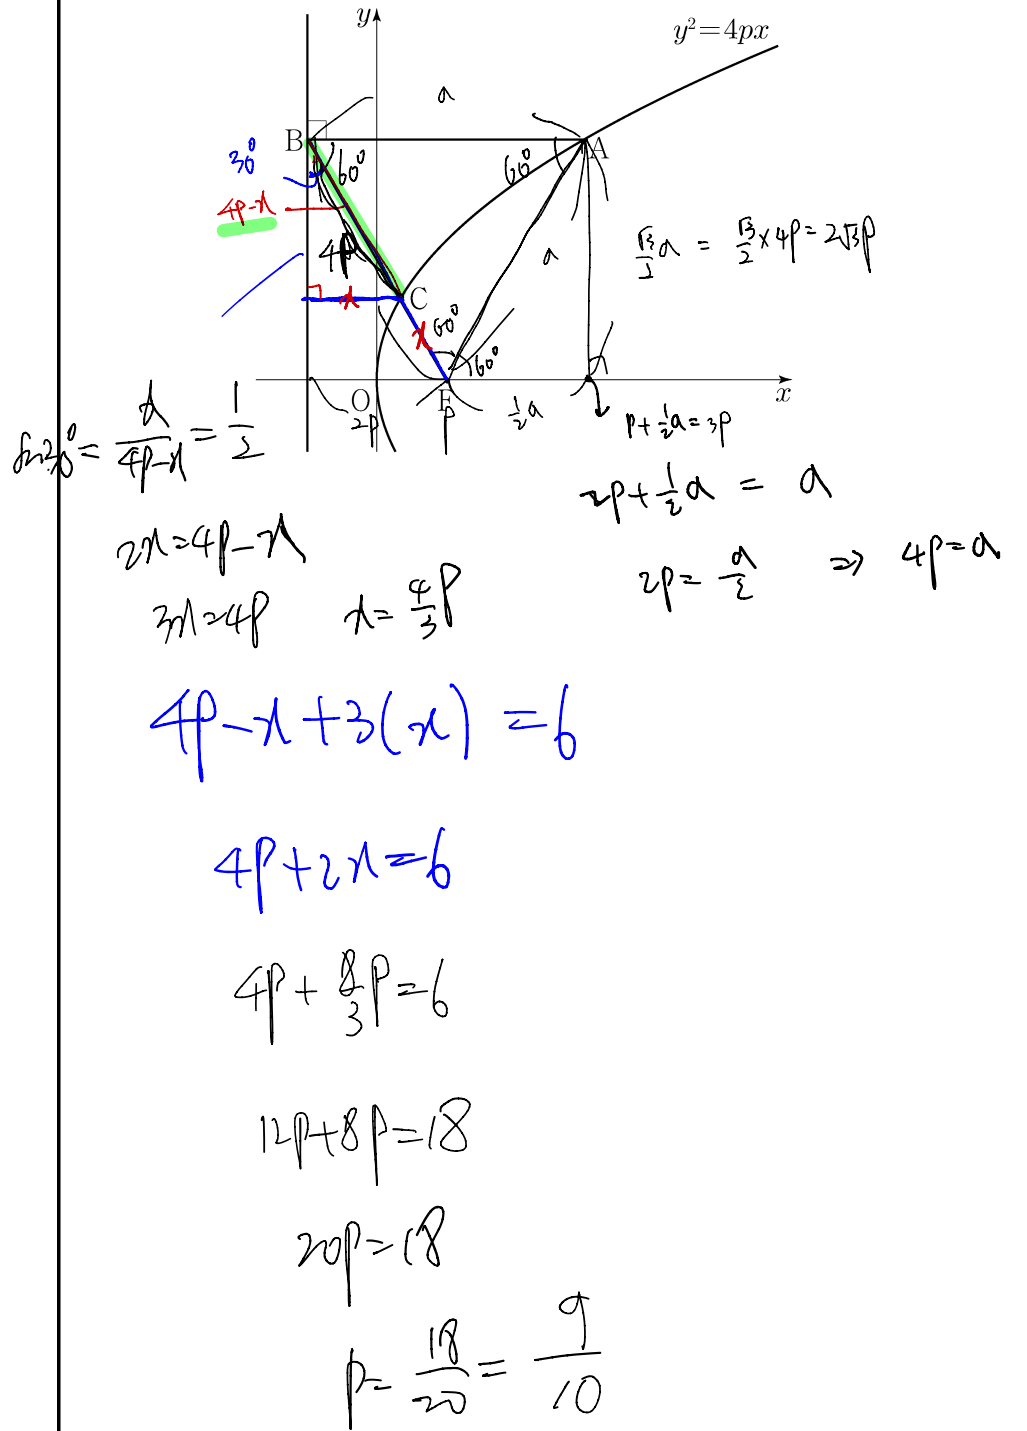 y
y²=4px
a
B
A
30°
60°
60°
4p-x
4p
a
√3/2 a = √3/2 × 4p = 2√3p
x
C
x
60°
60°
O
F
x
2p
p
1/2 a
p + 1/2 a = 3p
sin30° = x/(4p-x) = 1/2
2p + 1/2 a = a
2x = 4p - x
2p = a/2 ⇒ 4p = a
3x = 4p x = 4/3 p
4p - x + 3(x) = 6
4p + 2x = 6
4p + 8/3 p = 6
12p + 8p = 18
20p = 18
p = 18/20 = 9/10